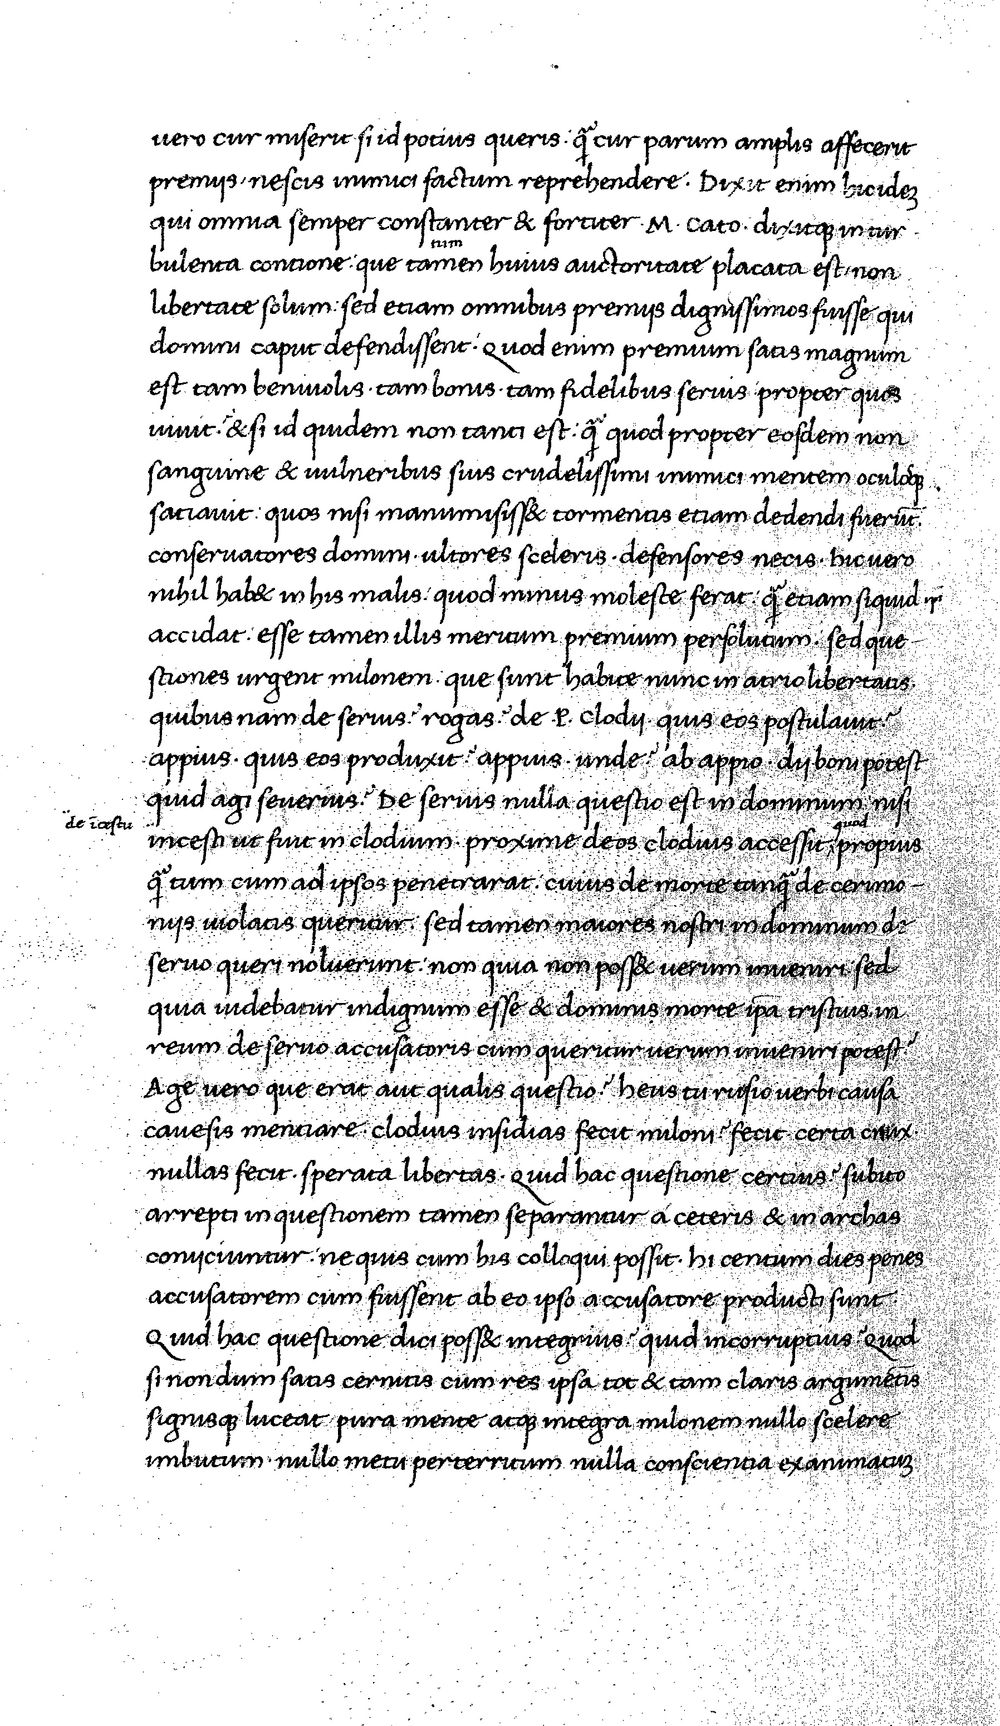 uero cur miserit si id potius queris · q̃ cur parum amplis affecerit
premijs · nescis inimici factum reprehendere · Dixit enim hic ideȝ
qui omnia semper constanter & fortiter · M · Cato · dixitqȝ in tur
tum
bulenta contione · que tamen huius auctoritate placata est · non
libertate solum · sed etiam omnibus premijs dignissimos fuisse qui
domini caput defendissent · Quod enim premium satis magnum
est tam beniuolis · tam bonis · tam fidelibus seruis propter quos
uiuit ? & si id quidem non tanti est · q̃ quod propter eosdem non
sanguine & uulneribus suis crudelissimi inimici mentem oculosqȝ
satiauit · quos nisi manumisiss& tormentis etiam dedendi fuerūt ·
conseruatores domini · ultores sceleris · defensores necis · hic uero
nihil hab& in his malis · quod minus moleste ferat · q̃ etiam siquid ip̄i
accidat · esse tamen illis meritum premium persolutum · sed que
stiones urgent milonem · que sunt habite nunc in atrio libertatis ·
quibus nam de seruis ? rogas ? de P · Clodij · quis eos postulauit ?
appius · quis eos produxit ? appius · unde ? ab appio · dij boni potest
quid agi seuerius ? De seruis nulla questio est in dominum nisi
de īcestu
quod
incesti ut fuit in clodium · proxime deos clodius accessit · propius
q̃ tum cum ad ipsos penetrarat · cuius de morte tanq̃ de cerimo
nijs uiolatis queritur · sed tamen maiores nostri in dominum de
seruo queri noluerunt · non quia non poss& uerum inueniri sed
quia uidebatur indignum esse & dominis morte ip̄a tristius · in
reum de seruo accusatoris cum queritur uerum inueniri potest ?
Age uero que erat aut qualis questio ? heus tu rufio uerbi causa
cauesis mentiare · clodius insidias fecit miloni ? fecit certa crux ·
nullas fecit · sperata libertas · Quid hac questione certius ? subito
arrepti in questionem tamen separantur a ceteris & in archas
conijciuntur · ne quis cum his colloqui possit · hi centum dies penes
accusatorem cum fuissent ab eo ipso accusatore producti sunt
Quid hac questione dici poss& integrius ? quid incorruptius ? Quod
si nondum satis cernitis cum res ipsa tot & tam claris argumētis
signisqȝ luceat pura mente atqȝ integra milonem nullo scelere
imbutum · nullo metu perterritum nulla conscientia examinatuȝ